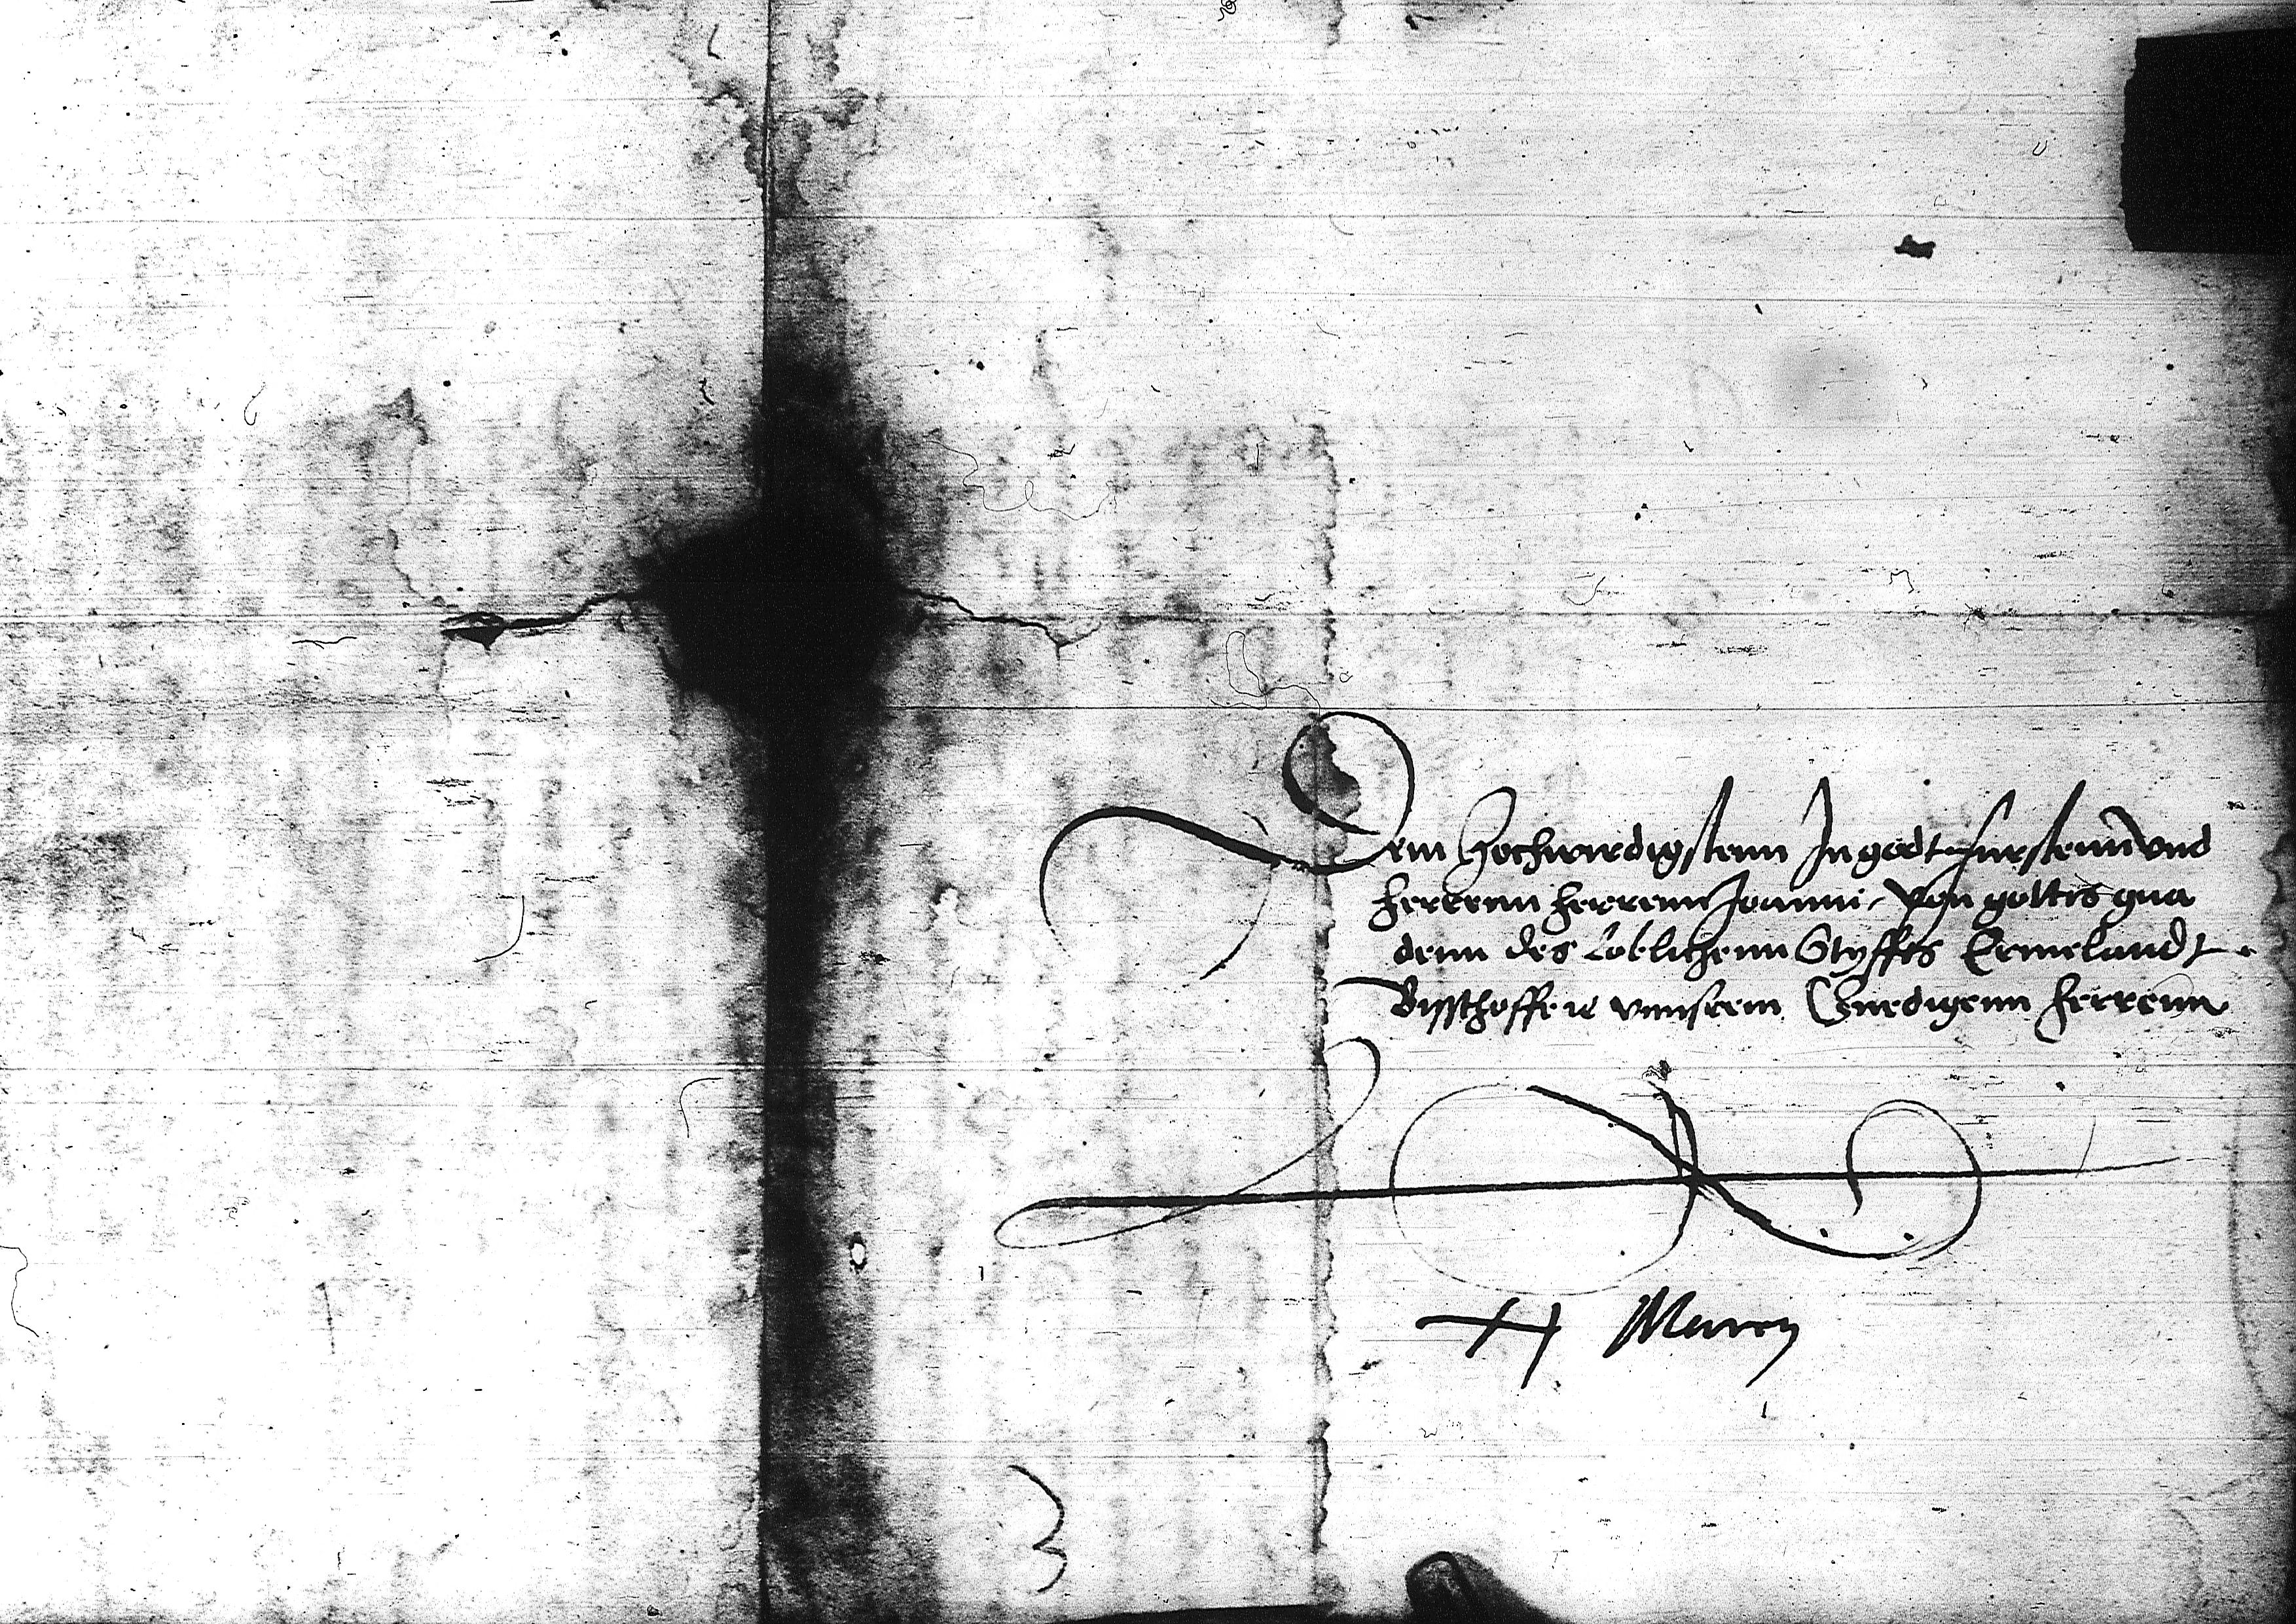 Dem Hochwirdigstenn In godt furstenn vnd
herrenn herrenn Joanni von gottes gna
denn des Loblichenn Styffts Ermelandt
Bisschoffe ic vnnserm Gnedigenn herrenn
3